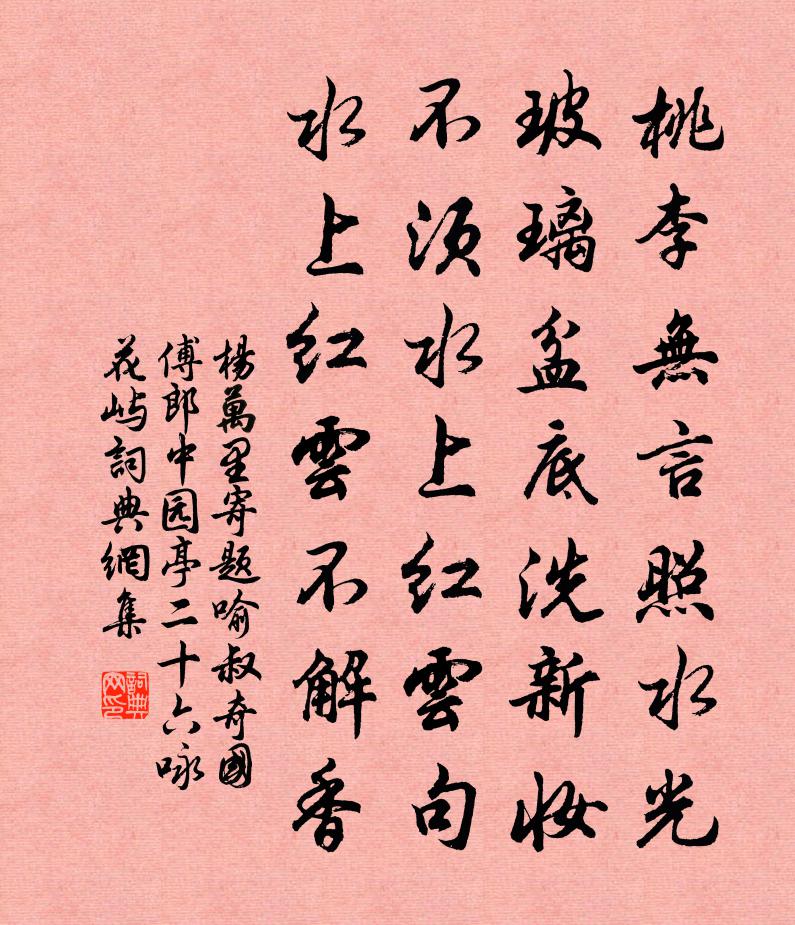 桃李無言照水光
玻璃盆底洗新妝
不須水上紅雲句
水上紅雲不解香
楊萬里寄題喻叔奇國
傅郎中园亭二十六咏
花屿詞典網集
詞典
网印